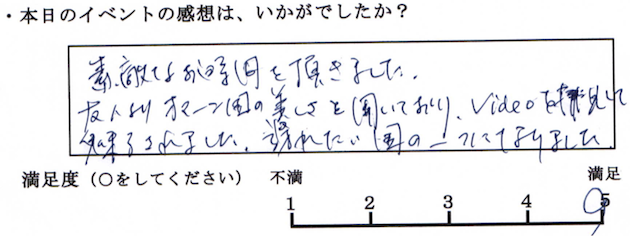 ・本日のイベントの感想は、いかがでしたか？
素敵なお時間を頂きました。
友人よりオマーン国の美しさと聞いており、Videoを拝見して
魅了されました。訪れたい国の一つになりました
満足度（○をしてください） 不満 満足
1 2 3 4 5